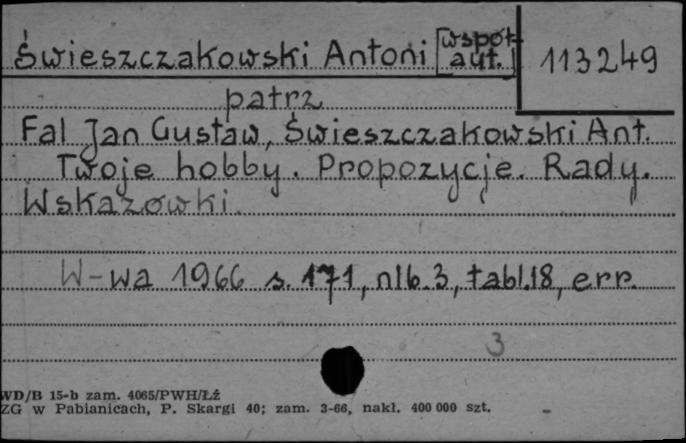 Świeszczakowski Antoni [współ-
aut.]
113249
patrz
Fal Jan Gustaw, Świeszczakowski Ant.
Twoje hobby. Propozycje. Rady.
Wskazówki.
W-wa 1966 s. 171, nlb. 3, tabl. 18, err.
3
WD/B 15-b zam. 4065/PWH/Łź
ZG w Pabianicach, P. Skargi 40; zam. 3-66, nakł. 400 000 szt.